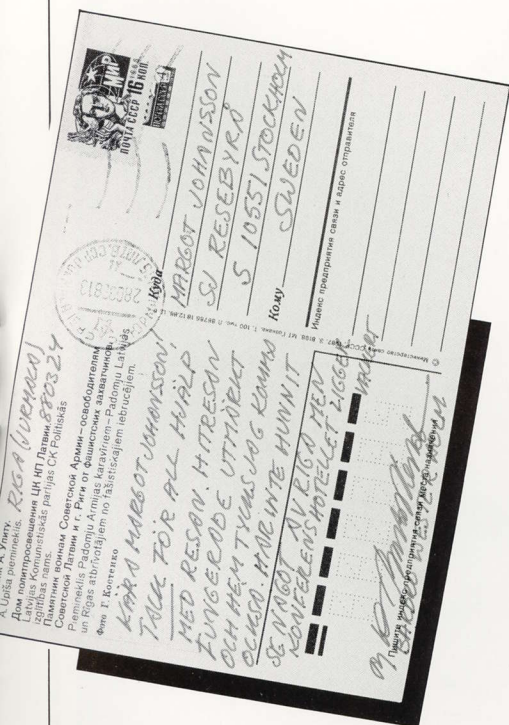 А. Упиту.
A. Upīša piemineklis. RIGA (JURMALA)
Дом политпросвещения ЦК КП Латвии. 880324
Latvijas Komunistiskās partijas CK Politiskās
izglītības nams.
Памятник воинам Советской Армии—освободителям
Советской Латвии и г. Риги от фашистских захватчиков.
Piemineklis Padomju Armijas karavīriem—Padomju Latvijas
un Rīgas atbrīvotājiem no fašistiskajiem iebrucējiem.
Фото Г. Костенко
KÄRA MARGOT JOHANSSON!
TACK FÖR ALL HJÄLP
MED RESAN. HITRESAN
FUNGERADE UTMÄRKT
OCH HEMTYCKS OG KOMMA
OCKSÅ. HAR INTE HUNNIT
SE NÅGOT AV RIGA MEN
KONFERENSHOTELLET LIGGER
VACKERT
МИР
ПОЧТА СССР 16 КОП.
Куда
MARGOT JOHANSSON
SJ RESEBYRÅ
S 10551 STOCKHOLM
Кому
SWEDEN
Индекс предприятия связи и адрес отправителя
© Министерство связи СССР
Пишите индекс предприятия связи места назначения